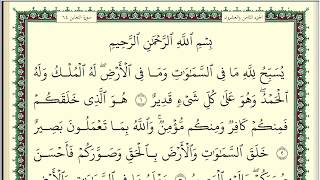 الجزء الثامن والعشرون سورة التغابن ٦٤
بِسْمِ اللَّهِ الرَّحْمَٰنِ الرَّحِيمِ
يُسَبِّحُ لِلَّهِ مَا فِي السَّمَاوَاتِ وَمَا فِي الْأَرْضِ ۖ لَهُ الْمُلْكُ وَلَهُ
الْحَمْدُ ۖ وَهُوَ عَلَىٰ كُلِّ شَيْءٍ قَدِيرٌ ١ هُوَ الَّذِي خَلَقَكُمْ
فَمِنكُمْ كَافِرٌ وَمِنكُم مُّؤْمِنٌ ۚ وَاللَّهُ بِمَا تَعْمَلُونَ بَصِيرٌ
٢ خَلَقَ السَّمَاوَاتِ وَالْأَرْضَ بِالْحَقِّ وَصَوَّرَكُمْ فَأَحْسَنَ